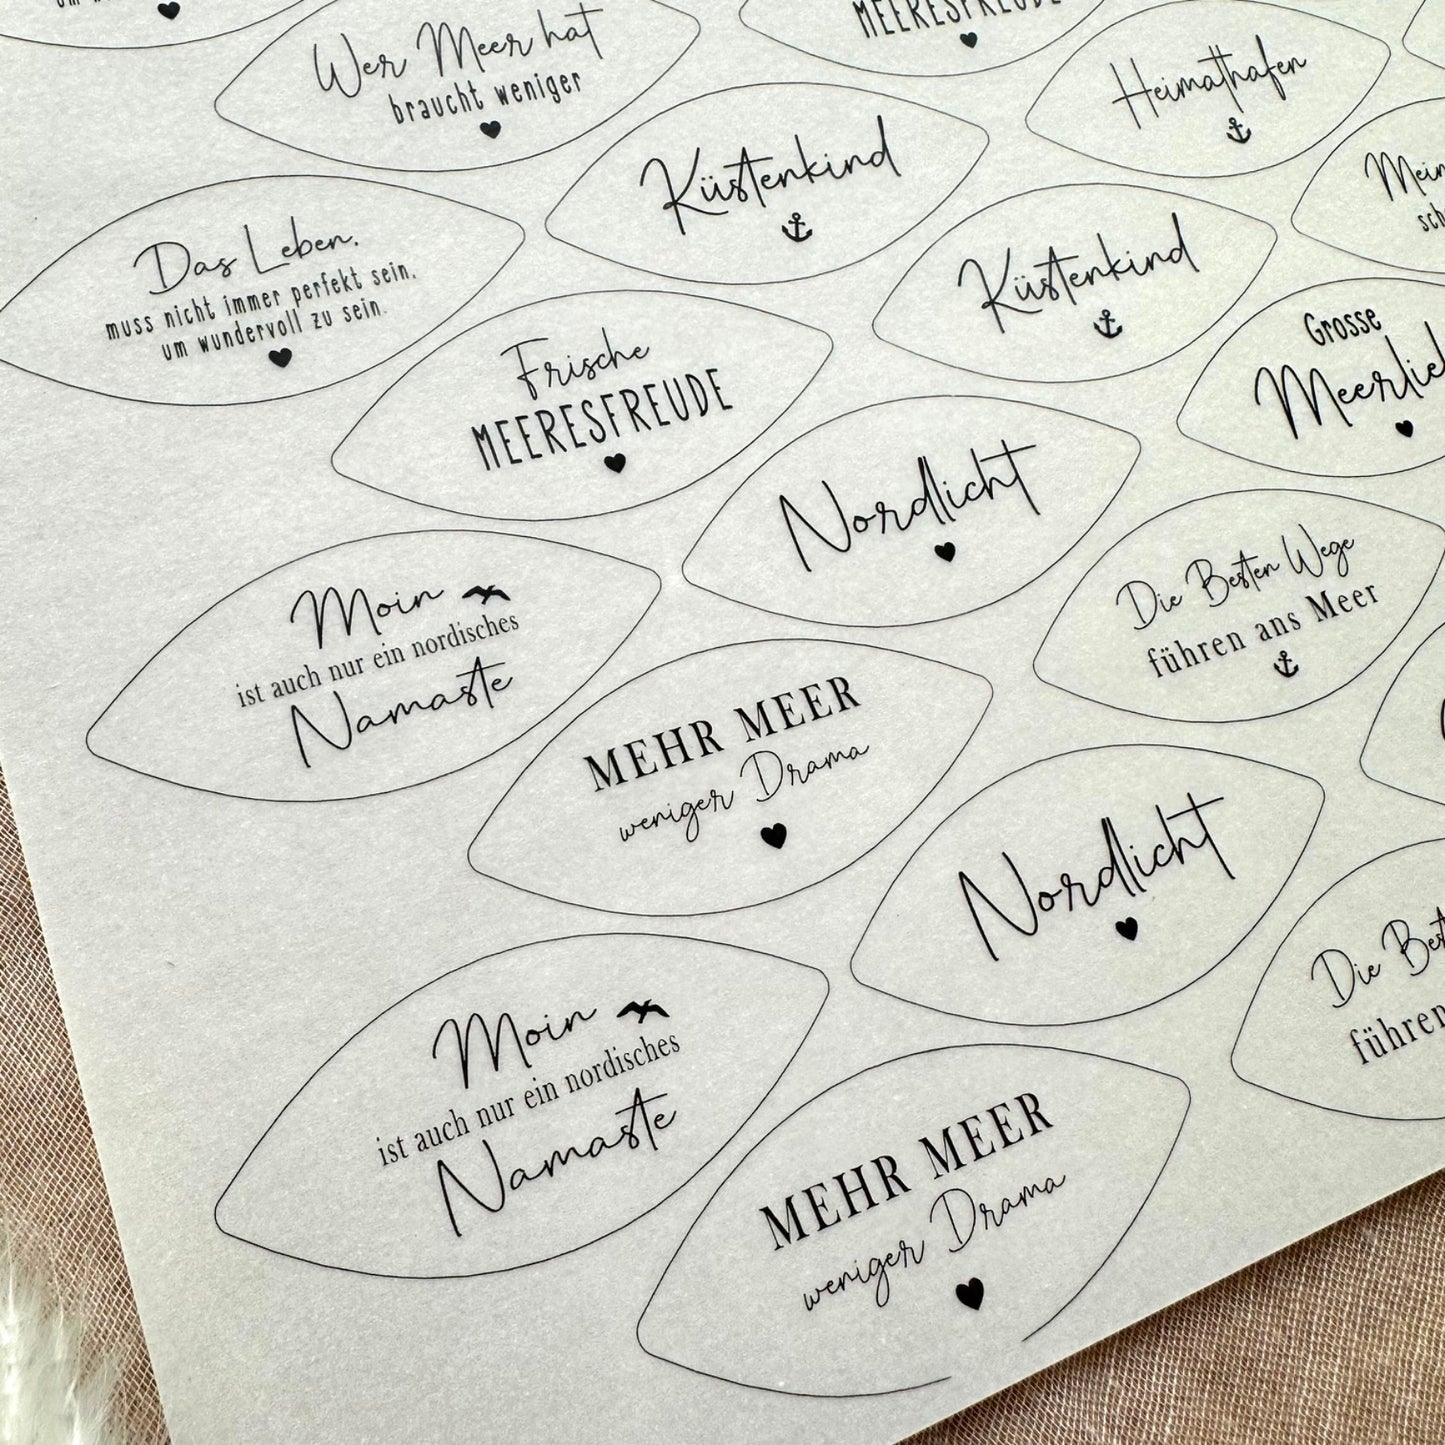 Wer Meer hat
braucht weniger
MEERESFREUDE
Heimathafen
Küstenkind
Das Leben,
muss nicht immer perfekt sein,
um wundervoll zu sein.
Küstenkind
Frische
MEERESFREUDE
Grosse
Nordlicht
Moin
ist auch nur ein nordisches
Namaste
Die Besten Wege
führen ans Meer
MEHR MEER
weniger Drama
Nordlicht
Moin
ist auch nur ein nordisches
Namaste
Die
führen
MEHR MEER
weniger Drama